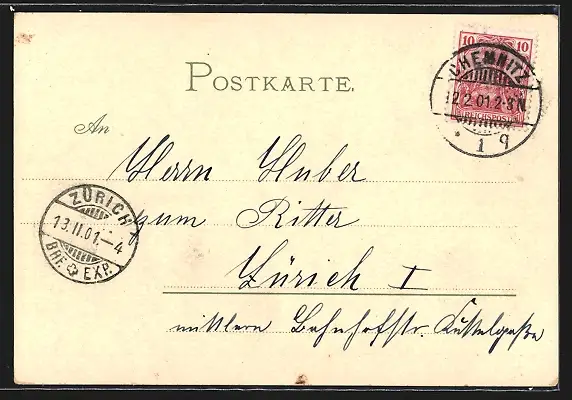 10 10
CHEMNITZ
12.2.01.2-3N.
REICHSPOST
1 q
POSTKARTE.
An
Herrn Huber
zum Ritter
Zürich I
mittlere Bahnhofstr. Kuttelgasse
ZÜRICH
13.II.01.–4
BRF. EXP.